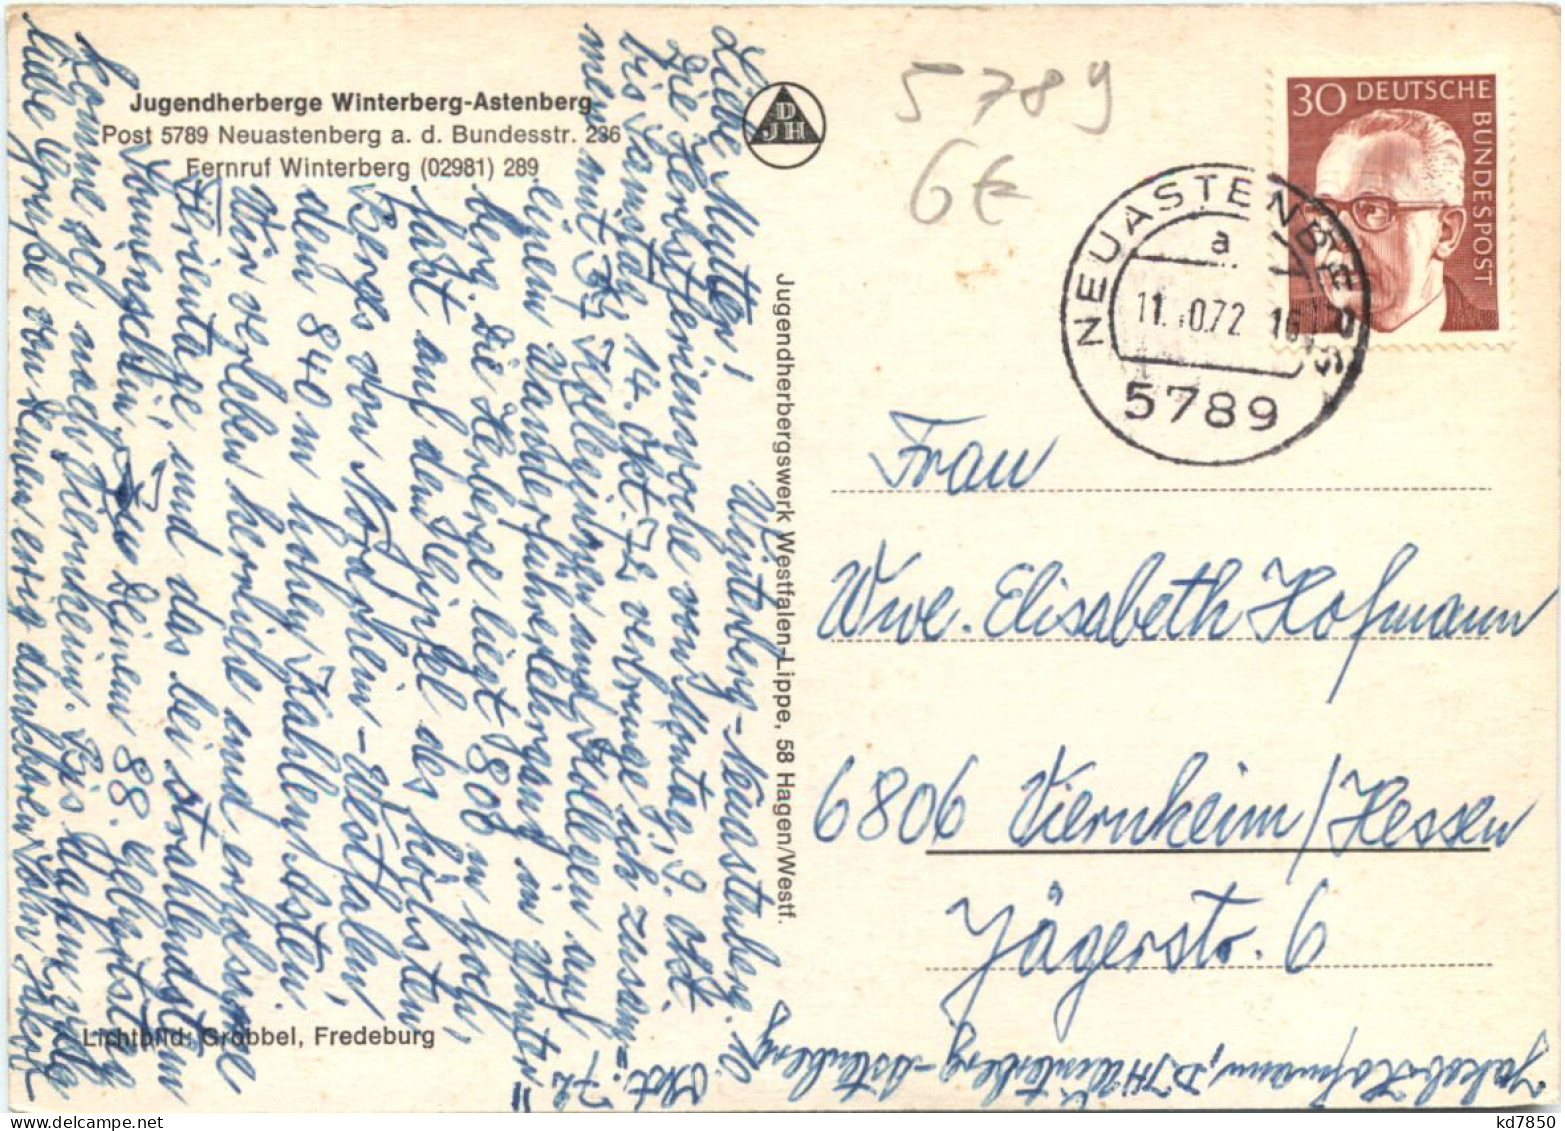 Jugendherberge Winterberg-Astenberg
Post 5789 Neuastenberg a. d. Bundesstr. 236
Fernruf Winterberg (02981) 289
DJH
5789
6€
30 DEUTSCHE
BUNDESPOST
NEUASTENBERG
a
11.10.72 16
5789
Winterberg-Neuastenberg, 10.
Okt. 72
Liebe Mutter!
Die Herbstferienwoche von Montag, 9. Okt.
bis Samstag, 14. Okt. 72 verbringe ich zusam=
men mit 37 Kolleginnen und Kollegen auf
einem Wanderführerlehrgang in Winter=
berg. Die Herberge liegt 800 m hoch,
fast auf dem Gipfel des höchsten
Berges von Nordrhein-Westfalen,
dem 840 m hohen Kahlen Asten.
Wir verleben herrliche und erholsame
Ferientage, und das bei strahlendstem
Sonnenschein. Zu Deinem 88. Geburtstag
komme ich nach Viernheim. Bis dahin viele
liebe Grüße von Deinem ewig dankbaren Sohn Jakob
Jugendherbergswerk Westfalen-Lippe, 58 Hagen/Westf.
Lichtbild: Grobbel, Fredeburg
Frau
Wwe. Elisabeth Hofmann
6806 Viernheim/Hessen
Jägerstr. 6
Jakob Hofmann, DJH Winterberg-Astenberg
kd7850